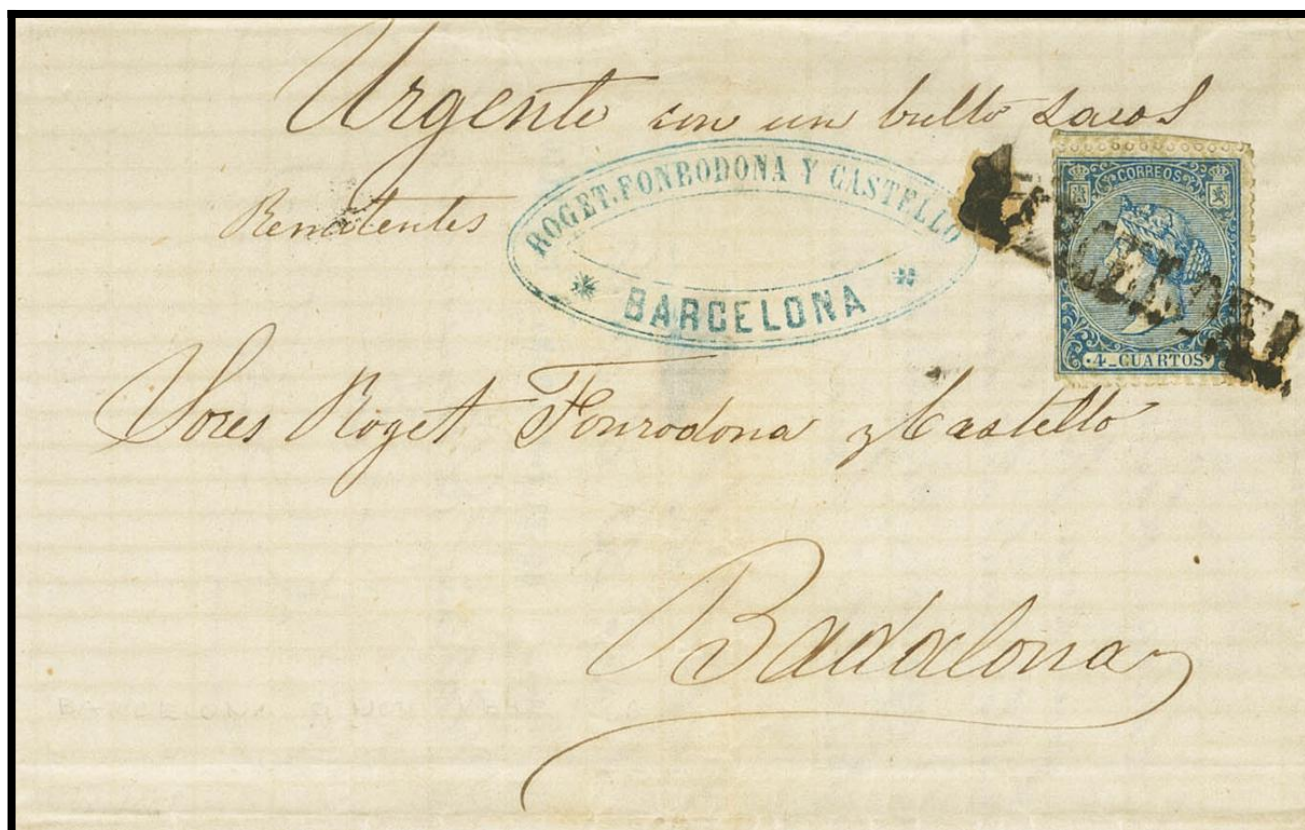 Urgente con un bulto sacos
Remitentes
ROGET, FONRODONA Y CASTELLO
BARCELONA
CORREOS
4_CUARTOS
Sores Roget Fonrodona y Castello
Badalona